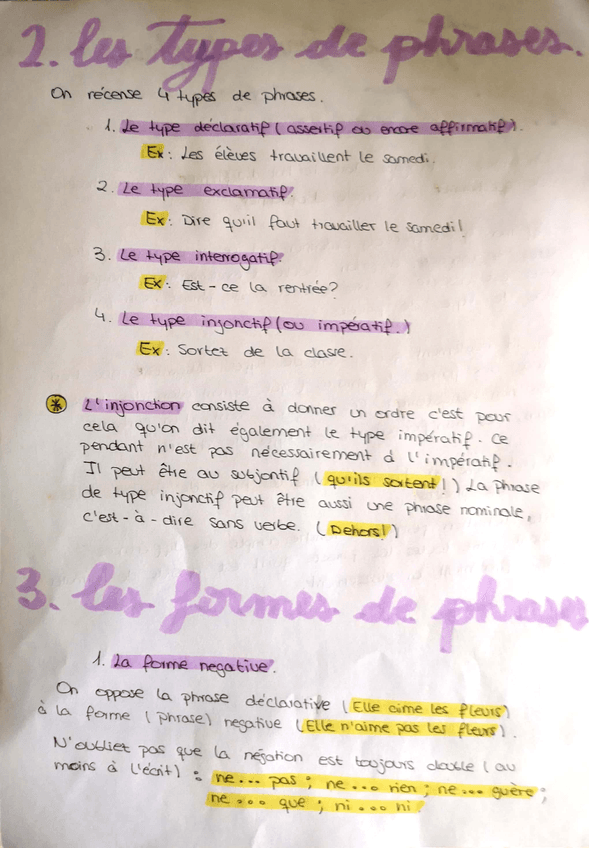 2. les types de phrases.
On récense 4 types de phrases.
1. Le type déclaratif (assertif ou encore affirmatif).
Ex: Les élèves travaillent le samedi.
2. Le type exclamatif.
Ex: Dire qu'il faut travailler le samedi!
3. Le type interrogatif.
Ex: Est-ce la rentrée?
4. Le type injonctif (ou impératif.)
Ex: Sortez de la classe.
* L'injonction consiste à donner un ordre c'est pour
cela qu'on dit également le type impératif. Ce
pendant n'est pas nécessairement à l'impératif.
Il peut être au subjontif (qu'ils sortent!) La phrase
de type injonctif peut être aussi une phrase nominale,
c'est-à-dire sans verbe. (Dehors!)
3. les formes de phrases
1. La forme negative.
On oppose la phrase déclarative (Elle aime les fleurs)
à la forme (phrase) negative (Elle n'aime pas les fleurs).
N'oubliez pas que la négation est toujours double (au
moins à l'écrit) : ne... pas ; ne... rien ; ne... guère ;
ne... que ; ni... ni